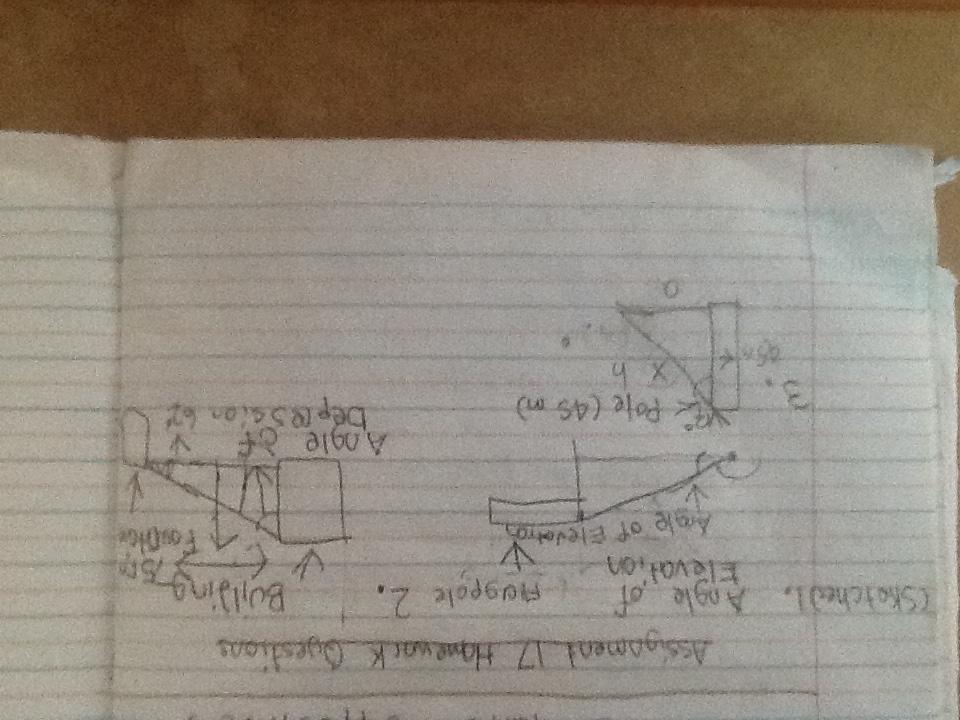 Assignment 17 Homework Questions
(Sketched) 1. Angle of Elevation
Flagpole
Angle of Elevation
2. Building
75 m
Angle of
Depression 62°
3. Pole (45 m)
x h
a